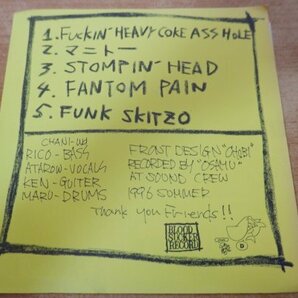 1. FUCKIN' HEAVY COKE ASS HOLE
2. マニトー
3. STOMPIN' HEAD
4. FANTOM PAIN
5. FUNK SKITZO
CHANI-
RICO-BASS
ATAROW-VOCALS
KEN-GUITER
MARU-DRUMS
FRONT DESIGN "CHOBI"
RECORDED BY "OSAMU"
AT SOUND CREW
1996 SOMMER
Thank you Friends!!
BLOOD
SUCKER
RECORD